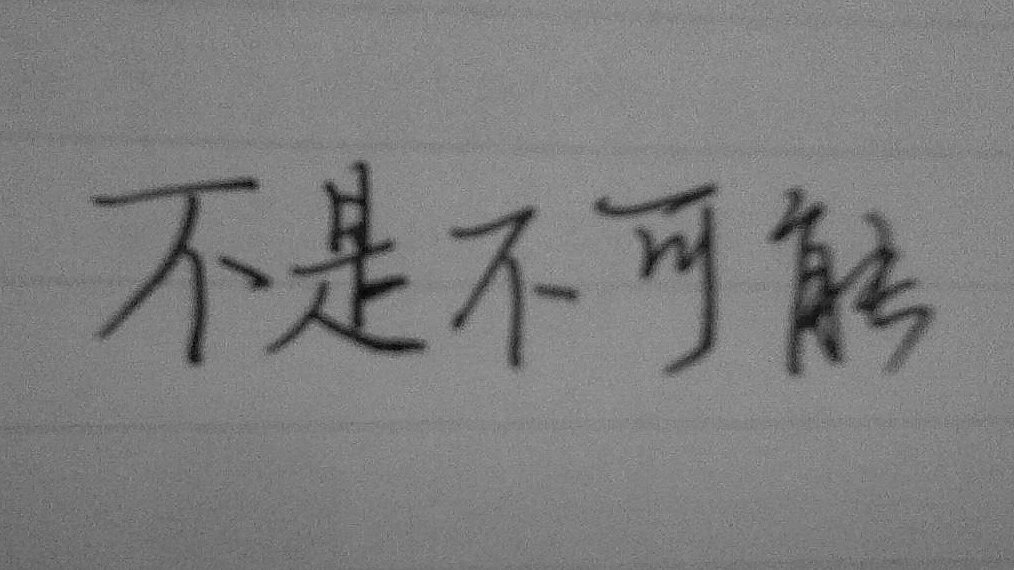 不是不可能